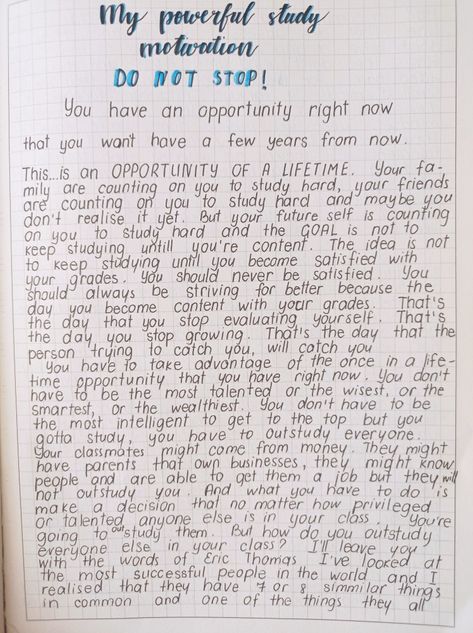 My powerful study
motivation
DO NOT STOP!
You have an opportunity right now
that you wan't have a few years from now.
This...is an OPPORTUNITY OF A LIFETIME. Your fa-
mily are counting on you to study hard, your friends
are counting on you to study hard and maybe you
don't realise it yet. But your future self is counting
on you to study hard and the GOAL is not to
keep studying untill you're content. The idea is not
to keep studying until you become satisfied with
your grades. You should never be satisfied. You
should always be striving for better because the
day you become content with your grades. That's
the day that you stop evaluating yourself. That's
the day you stop growing. That's the day that the
person trying to catch you, will catch you
You have to take advantage of the once in a life-
time opportunity that you have right now. You don't
have to be the most talented or the wisest, or the
smartest, or the wealthiest. You don't have to be
the most intelligent to get to the top but you
gotta study, you have to outstudy everyone.
Your classmates might come from money. They might
have parents that own businesses, they might know
people and are able to get them a job but they will
not outstudy you. And what you have to do is
make a decision that no matter how privileged
or talented anyone else is in your class. You're
going to outstudy them. But how do you outstudy
everyone else in your class? I'll leave you
with the words of Eric Thomas I've looked at
the most successful people in the world and I
realised that they have 7 or 8 simmilar things
in common and one of the things they all